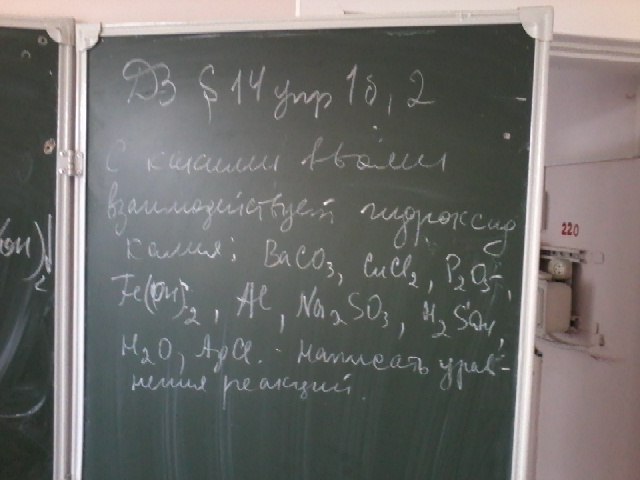 ДЗ § 14 упр 1б, 2
С какими в-вами
взаимодействует гидроксид
калия: BaCO₃, CuCl₂, P₂O₅,
Fe(OH)₂, Al, Na₂SO₃, H₂SO₄,
H₂O, AgCl. Написать урав-
нения реакций.
(OH)₂
220